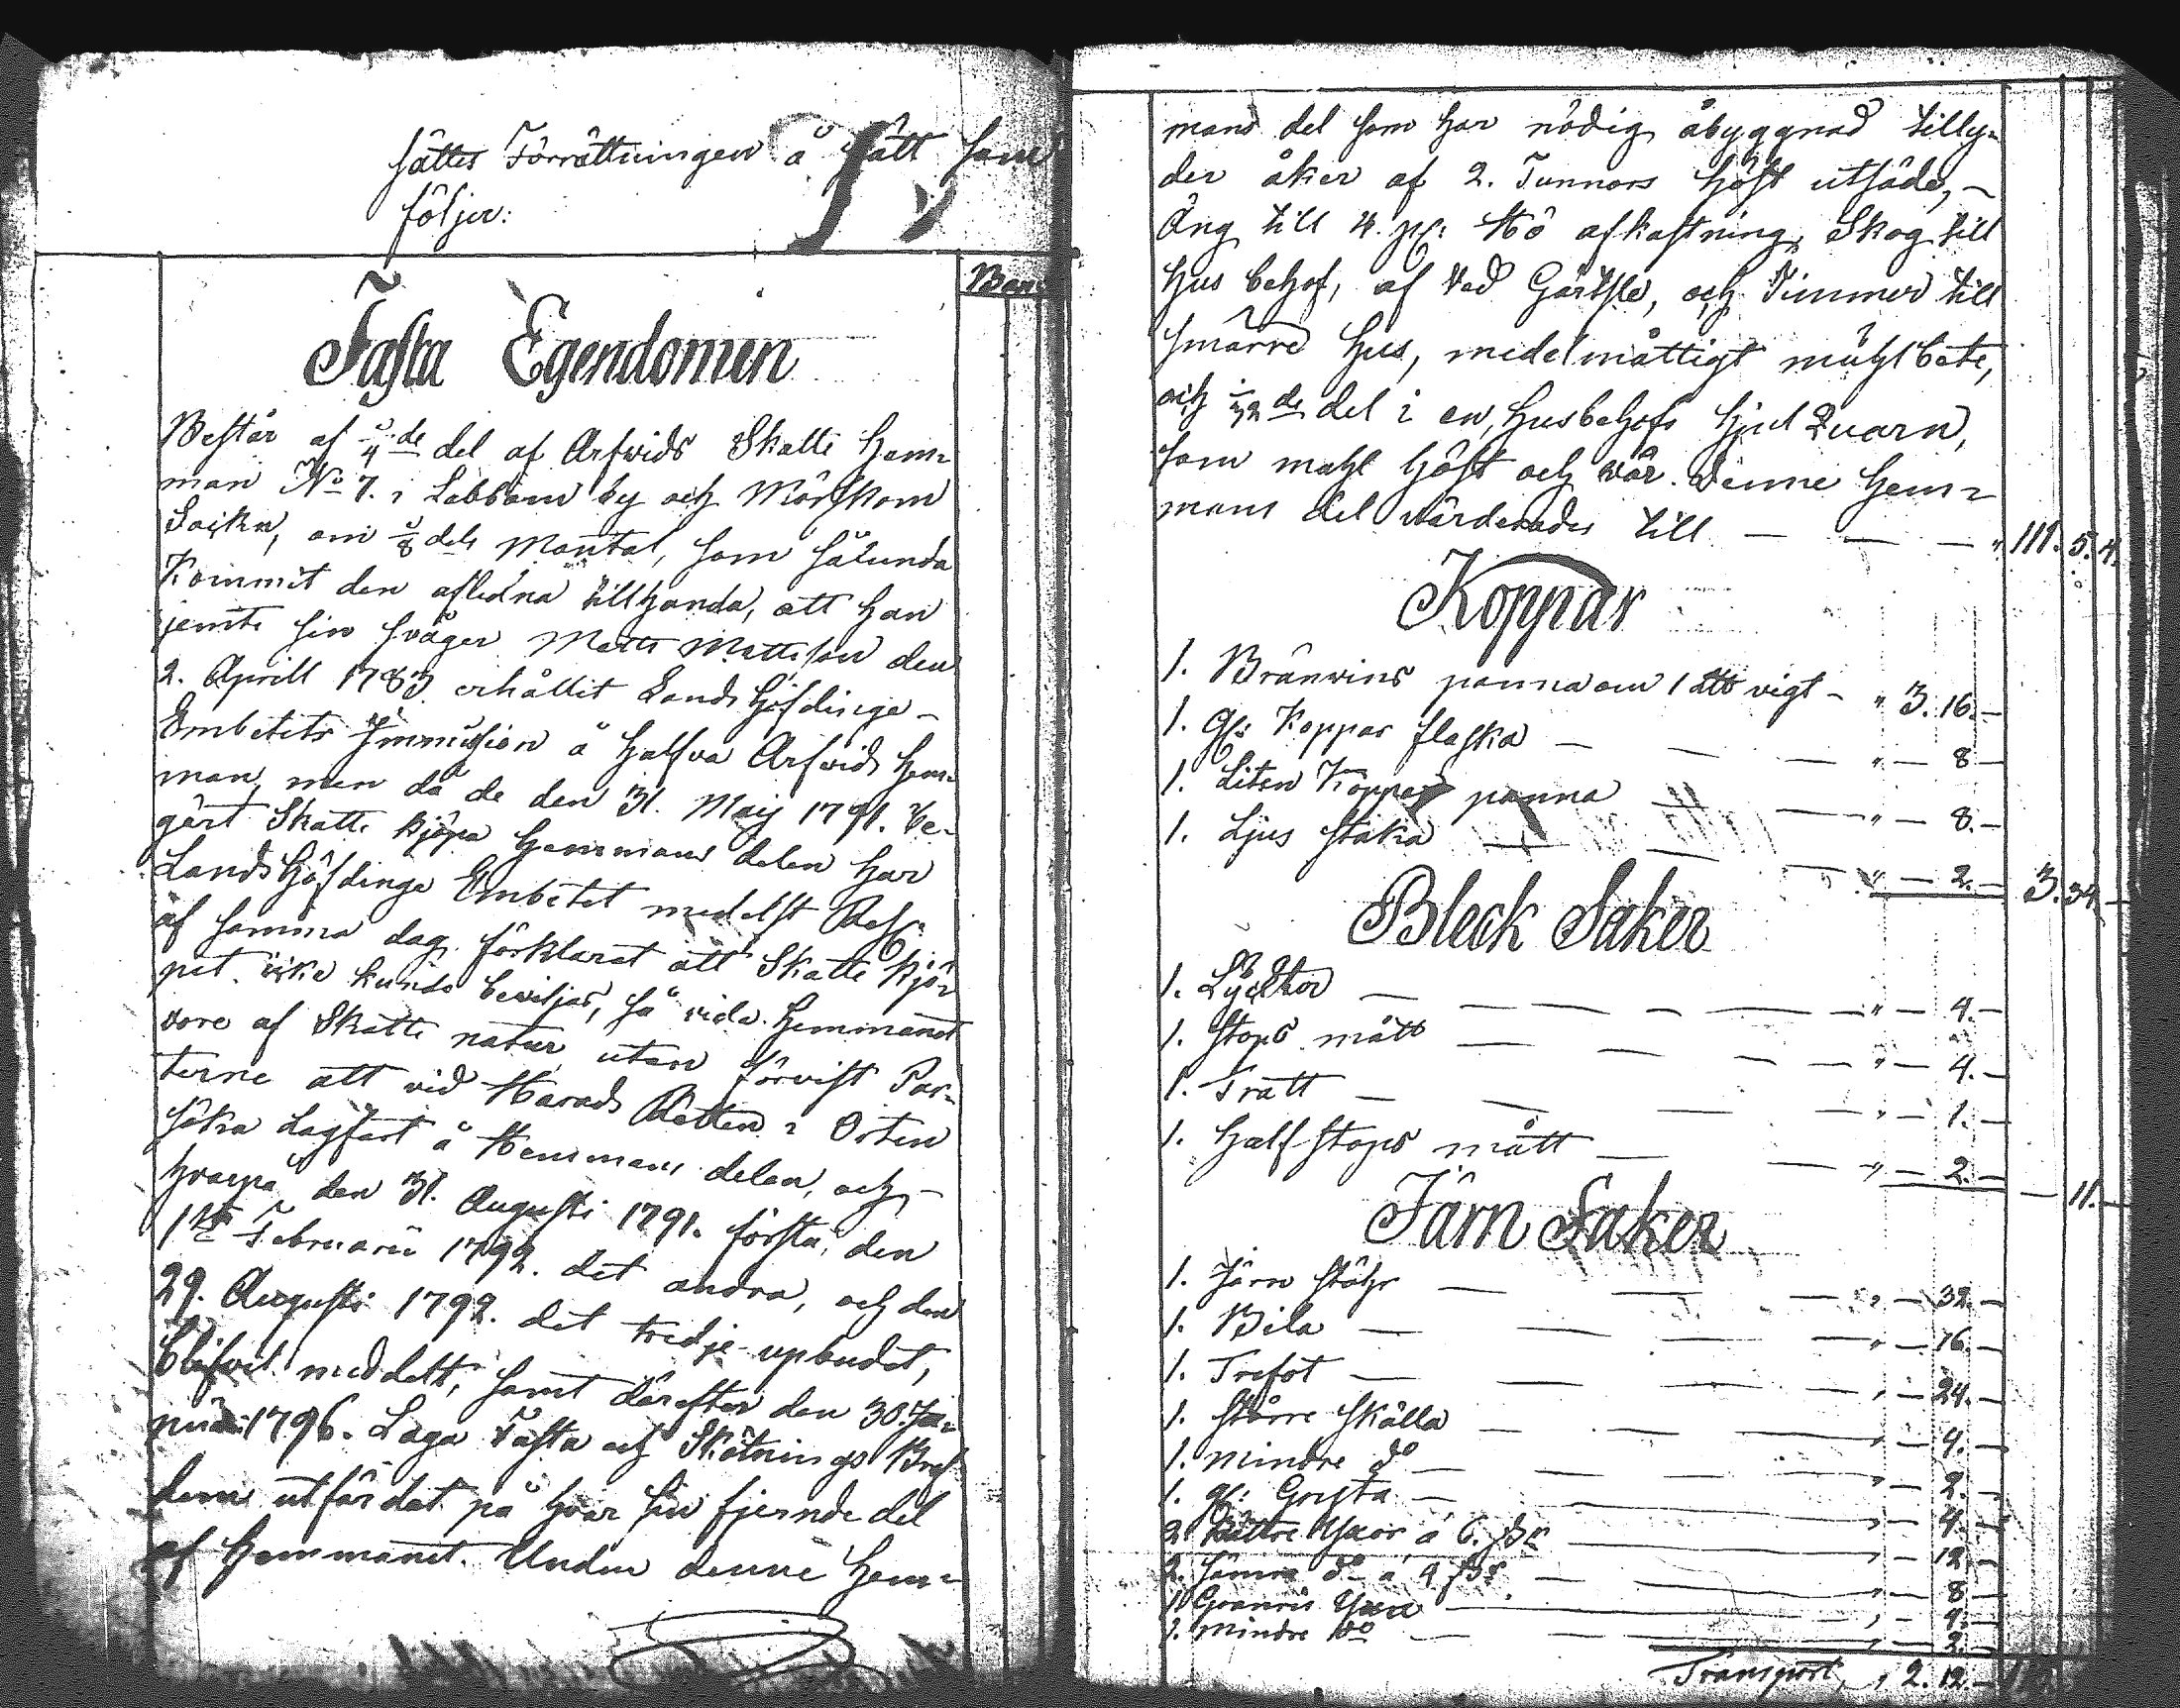 sättes Förrättningen å sätt som
följer:
Fasta Egendomen
Består af ¼de del af Arfvids Skatte Hem=
man No 7. i Labbom by och Mörskom
Sockn, om ⅛dels Mantal, som sålunda
kommit den aflidna tillhanda, att han
jemte sin svåger Matts Mattsson den
2. Aprill 1783 erhållit Landshöfdinge-
Embetets Immission å halfva Arfvids Hem=
man, men då de den 31. Maij 1791. be-
gärt Skatte kjöpa Hemmans delen har
LandsHöfdinge Embetet medelst Res:
af samma dag förklarat att Skatte kjö=
pet icke kunde beviljas, så vida Hemmanet
vore af Skatte natur, utan förvist Par=
terne att vid Härads Rätten i Orten
söka Lagfart å Hemmans delen, och
hvarpå den 31. Augusti 1791. första, den
1ste Februarii 1792. det andra, och den
29. Augusti 1792. det tredje upbudet,
blifvit meddelt, samt därefter den 30. Ja=
nuarii 1796. Laga Fasta och Skötnings Bref
dem utfärdat på hvar sin fjerndedel
af Hemmanet. Under denne Hem=
mans del som har nödig åbyggnad lilly=
der åker af 2. Tunnors höst utsäde,
Äng till 4. Hö afkastning, Skog till
Hus behof, af Ved Gärdsle, och Timmer till
smärre Hus, medelmåttigt muhlbete,
och 1/32de del i en, Husbehofs Hjul Quarn,
som mahl höst och vår. Denne Hem=
mans del värderades till — — — " 111. 5. 4.
Koppar
1. Bränvins panna om 1 vigt — " 3. 16. —
1. Gl: Koppar flaska — — " — 8 —
1. Liten Koppar panna — — " — 8. —
1. Ljus staka — — " — 2. — 3. 34. —
Bleck Saker
1. Lychtor — — — — " — 4. —
1. Stops mått — — — " — 4. —
1. Tratt — — — " — 1. —
1. Half stops mått — — " — 2. — — 11. —
Järn Saker
1. Järn stöhr — — — " — 32. —
1. Bila — — — " — 16. —
1. Trefot — — — " — 24. —
1. Större Skälla — — " — 4. —
1. mindre do — — " — 2. —
1. gl: Gryta — — " — 4. —
2. bättre Yxor á 6. — " — 12. —
2. sämre do á 4 — " — 8 —
1. Yxa — — " — 4. —
1. mindre do — — " — 2. —
Transport, " 2. 12. —